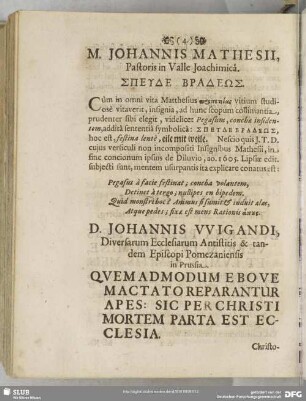 (4)
M. JOHANNIS MATHESII,
Pastoris in Valle Joachimicâ.
ΣΠΕΥΔΕ ΒΡΑΔΕΩΣ.
Cùm in omni vita Matthesius vitium studi-
osè vitaverit, insignia, ad hunc scopum collimantia,
prudenter sibi elegit, videlicet Pegasum, concha insiden-
tem, additâ sententiâ symbolicâ: ΣΠΕΥΔΕ ΒΡΑΔΕΩΣ,
hoc est, festina lentè, eile mit weile. Nescio quis J. T. D.
cujus versiculi non incompositi Insignibus Mathesii, in
fine concionum ipsius de Diluvio, ao. 1605. Lipsiæ edit.
subjecti sunt, mentem usurpantis ita explicare conatus est:
Pegasus à facie festinat; concha volantem,
Detinet à tergo; nullipes en bipedem.
Quid monstri hoc? Animus si sumit & induit alas,
Atque pedes; fixa est mens Rationis
D. JOHANNIS VVIGANDI,
Diversarum Ecclesiarum Antistitis & tan-
dem Episcopi Pomezaniensis
in Prussia.
QVEMADMODUM E BOVE
MACTATO REPARANTUR
APES: SIC PER CHRISTI
MORTEM PARTA EST EC-
CLESIA.
Christo-
SLUB
Wir führen Wissen.
gefördert von der
Deutschen Forschungsgemeinschaft
DFG